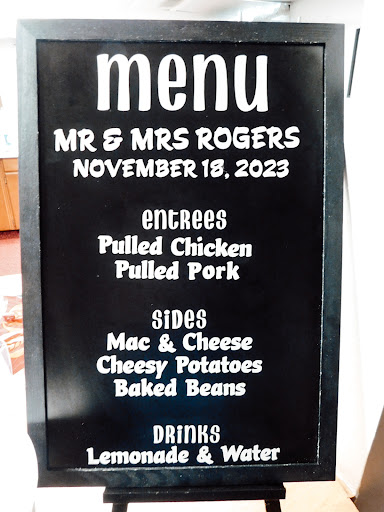 menu
MR & MRS ROGERS
NOVEMBER 18, 2023
ENTREES
Pulled Chicken
Pulled Pork
SIDES
Mac & Cheese
Cheesy Potatoes
Baked Beans
DRINKS
Lemonade & Water